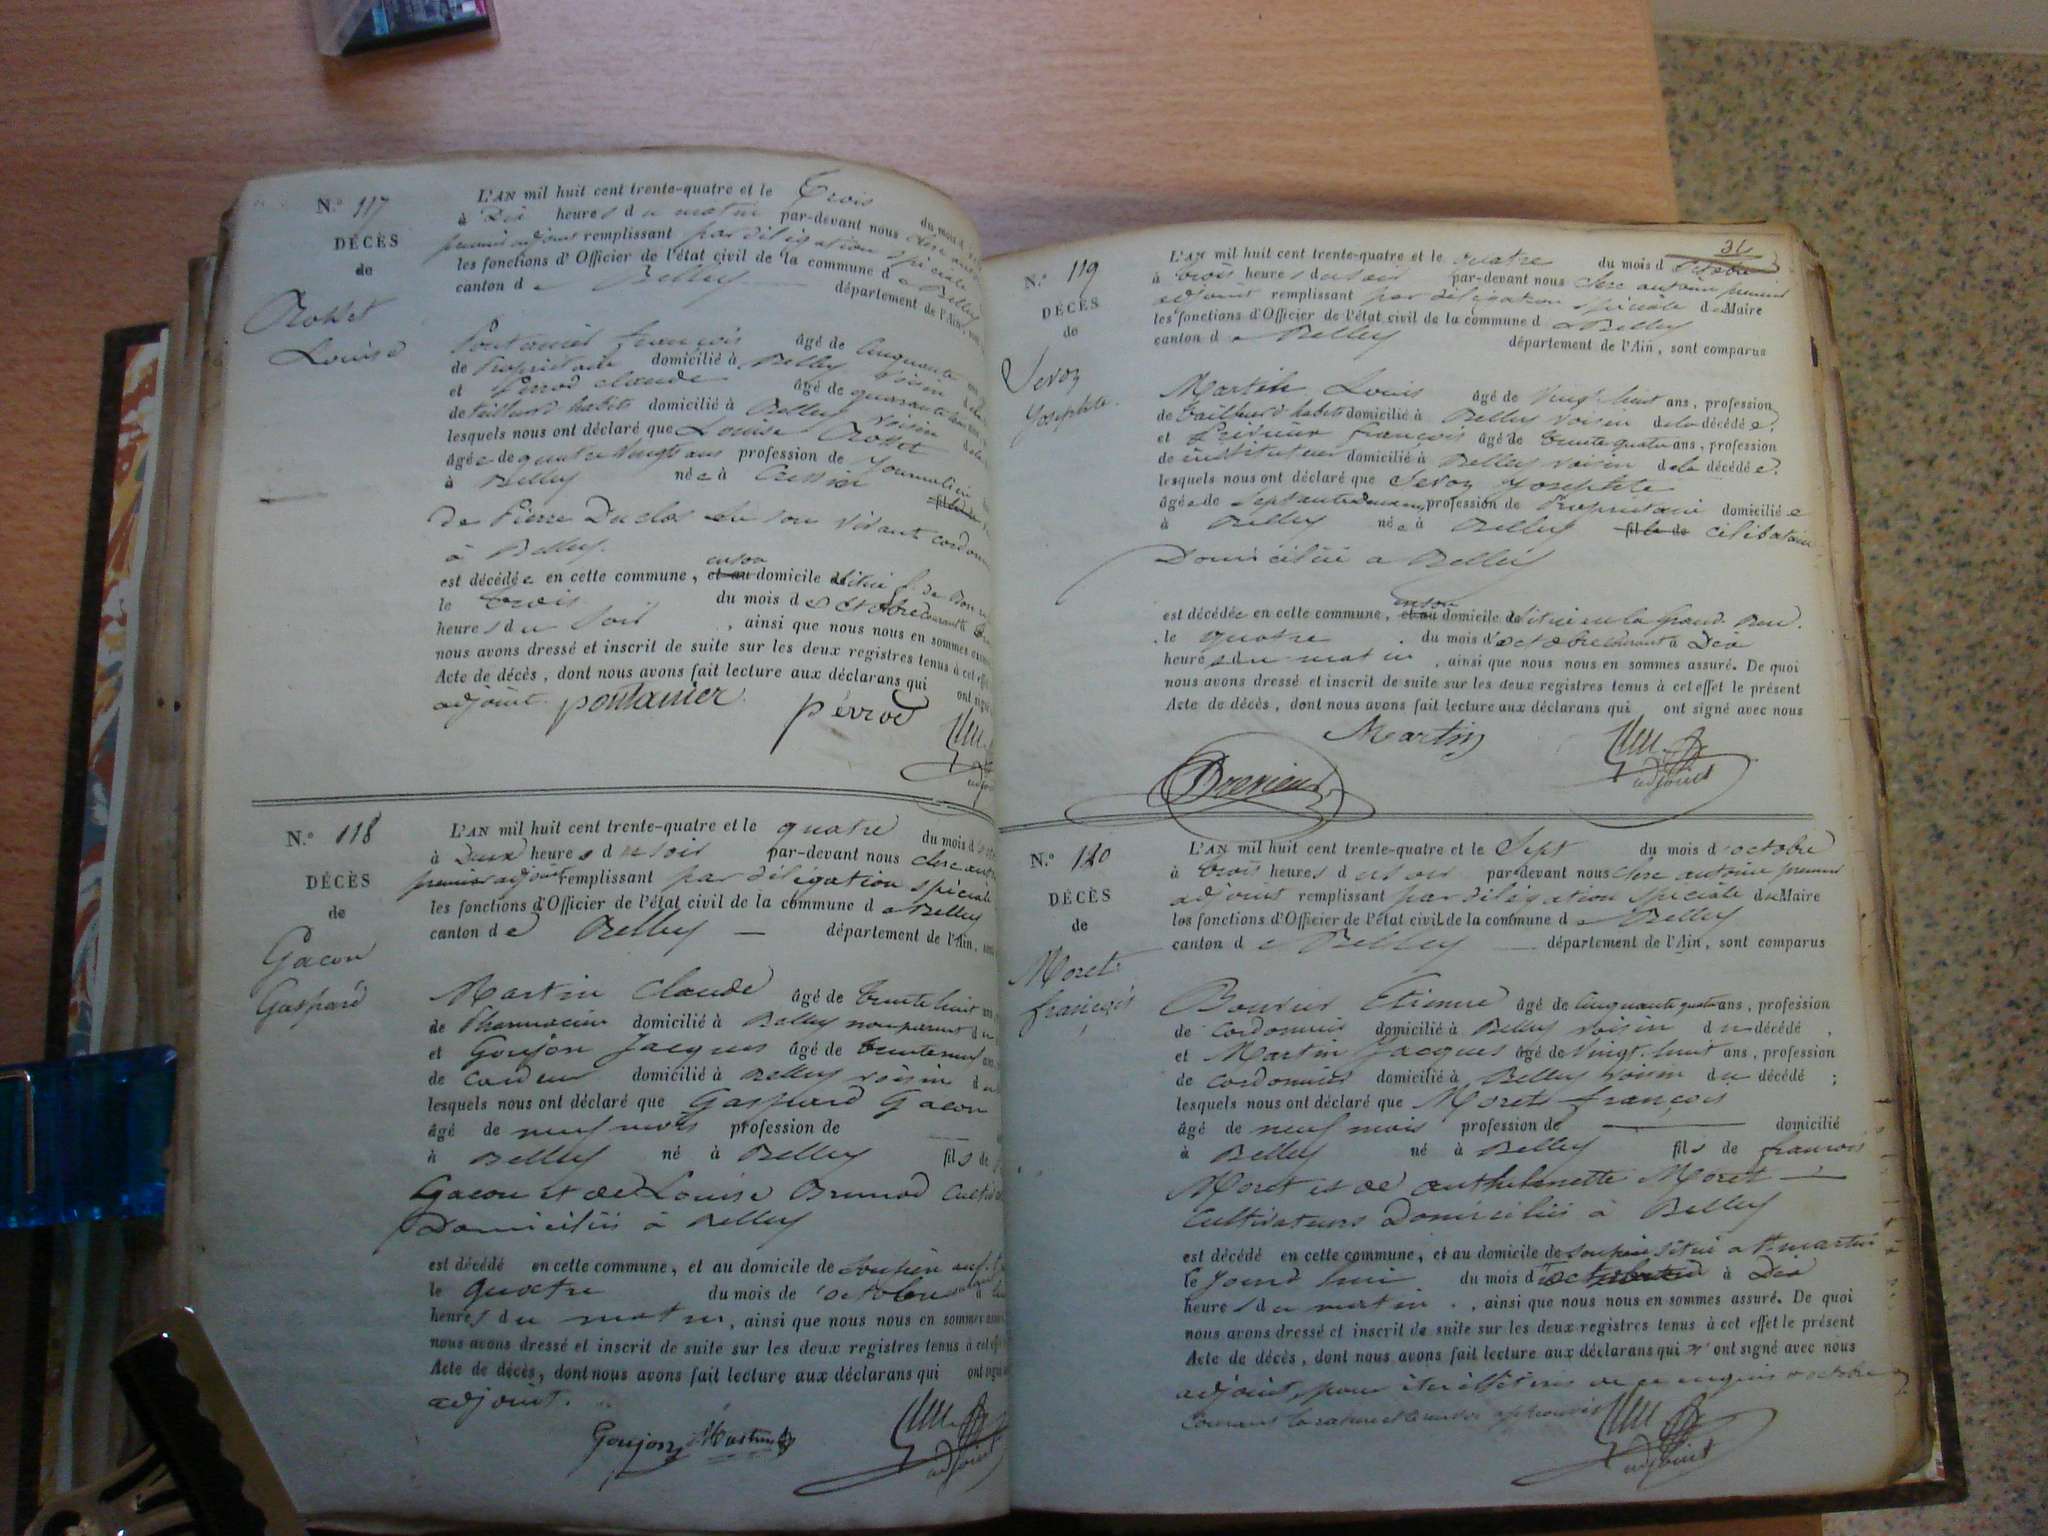 N.º 117
DÉCÈS
de
Louise
L'AN mil huit cent trente-quatre et le Trois du mois d
à Dix heures du matin par-devant nous
premier adjoint remplissant par délégation spéciale
les fonctions d'Officier de l'état civil de la commune de Belley
canton de Belley département de l'Ain,
Pontanier François âgé de cinquante
de Propriétaire domicilié à Belley voisin
et Perrod Claude âgé de quarante
de tailleur d'habits domicilié à Belley voisin
lesquels nous ont déclaré que Louise
âgée de quatre vingts ans profession de Journalière
à Belley née à Cressin
de Pierre Duclos en son vivant
à Belley.
est décédée en cette commune, et au en son domicile situé
le trois du mois d'octobre courant à
heures du soir, ainsi que nous nous en sommes
nous avons dressé et inscrit de suite sur les deux registres tenus à cet
Acte de décès, dont nous avons fait lecture aux déclarans qui ont signé
adjoint. pontanier perrod
N.º 118
DÉCÈS
de
Gacon
Gaspard
L'AN mil huit cent trente-quatre et le quatre du mois d
à Deux heures du soir par-devant nous clerc
premier adjoint remplissant par délégation spéciale
les fonctions d'Officier de l'état civil de la commune de Belley
canton de Belley — département de l'Ain,
Martin Claude âgé de trente huit
de Pharmacien domicilié à Belley non parent
et Goujon Jacques âgé de trente neuf
de cardeur domicilié à Belley voisin
lesquels nous ont déclaré que Gaspard Gacon
âgé de neuf mois profession de —
à Belley né à Belley fils de
Gacon et de Louise Brunod
Domiciliés à Belley
est décédé en cette commune, et au domicile de
le quatre du mois de octobre
heures du matin, ainsi que nous nous en sommes
nous avons dressé et inscrit de suite sur les deux registres tenus à cet
Acte de décès, dont nous avons fait lecture aux déclarans qui ont signé
adjoint.
Goujon Martin
adjoint
N.º 119
DÉCÈS
de
Josephte.
L'AN mil huit cent trente-quatre et le quatre du mois d'octobre
à trois heures du soir par-devant nous clerc antoine premier
adjoint remplissant par délégation spéciale du Maire
les fonctions d'Officier de l'état civil de la commune de Belley
canton de Belley département de l'Ain, sont comparus
Martin Louis âgé de vingt huit ans, profession
de tailleur d'habits domicilié à Belley voisin de la décédée,
et françois âgé de trente quatre ans, profession
de instituteur domicilié à Belley voisin de la décédée.
lesquels nous ont déclaré que Josephte
âgée de profession de Propriétaire domiciliée
à Belley née à Belley fille de célibataire
Domiciliée a Belley
est décédée en cette commune, et au en son domicile situé en la Grand Rue.
le quatre du mois d'octobre courant à Dix
heures du matin, ainsi que nous nous en sommes assuré. De quoi
nous avons dressé et inscrit de suite sur les deux registres tenus à cet effet le présent
Acte de décès, dont nous avons fait lecture aux déclarans qui ont signé avec nous
Martin
adjoint
N.º 120
DÉCÈS
de
Moret
françois
L'AN mil huit cent trente-quatre et le Sept du mois d'octobre
à trois heures du soir par-devant nous clerc antoine premier
adjoint remplissant par délégation spéciale du Maire
les fonctions d'Officier de l'état civil de la commune de Belley
canton de Belley — département de l'Ain, sont comparus
Bouvier Etienne âgé de cinquante quatre ans, profession
de cordonnier domicilié à Belley voisin du décédé,
et Martin Jacques âgé de vingt huit ans, profession
de cordonnier domicilié à Belley voisin du décédé;
lesquels nous ont déclaré que Moret françois
âgé de neuf mois profession de — domicilié
à Belley né à Belley fils de francois
Moret et de anthelmette Moret —
Cultivateurs Domiciliés à Belley
est décédé en cette commune, et au domicile de son père situé a St martin
le jourd'hui du mois d' à Dix
heures du matin, ainsi que nous nous en sommes assuré. De quoi
nous avons dressé et inscrit de suite sur les deux registres tenus à cet effet le présent
Acte de décès, dont nous avons fait lecture aux déclarans qui n'ont signé avec nous
adjoint, pour être de ce requis octobre
courant
adjoint